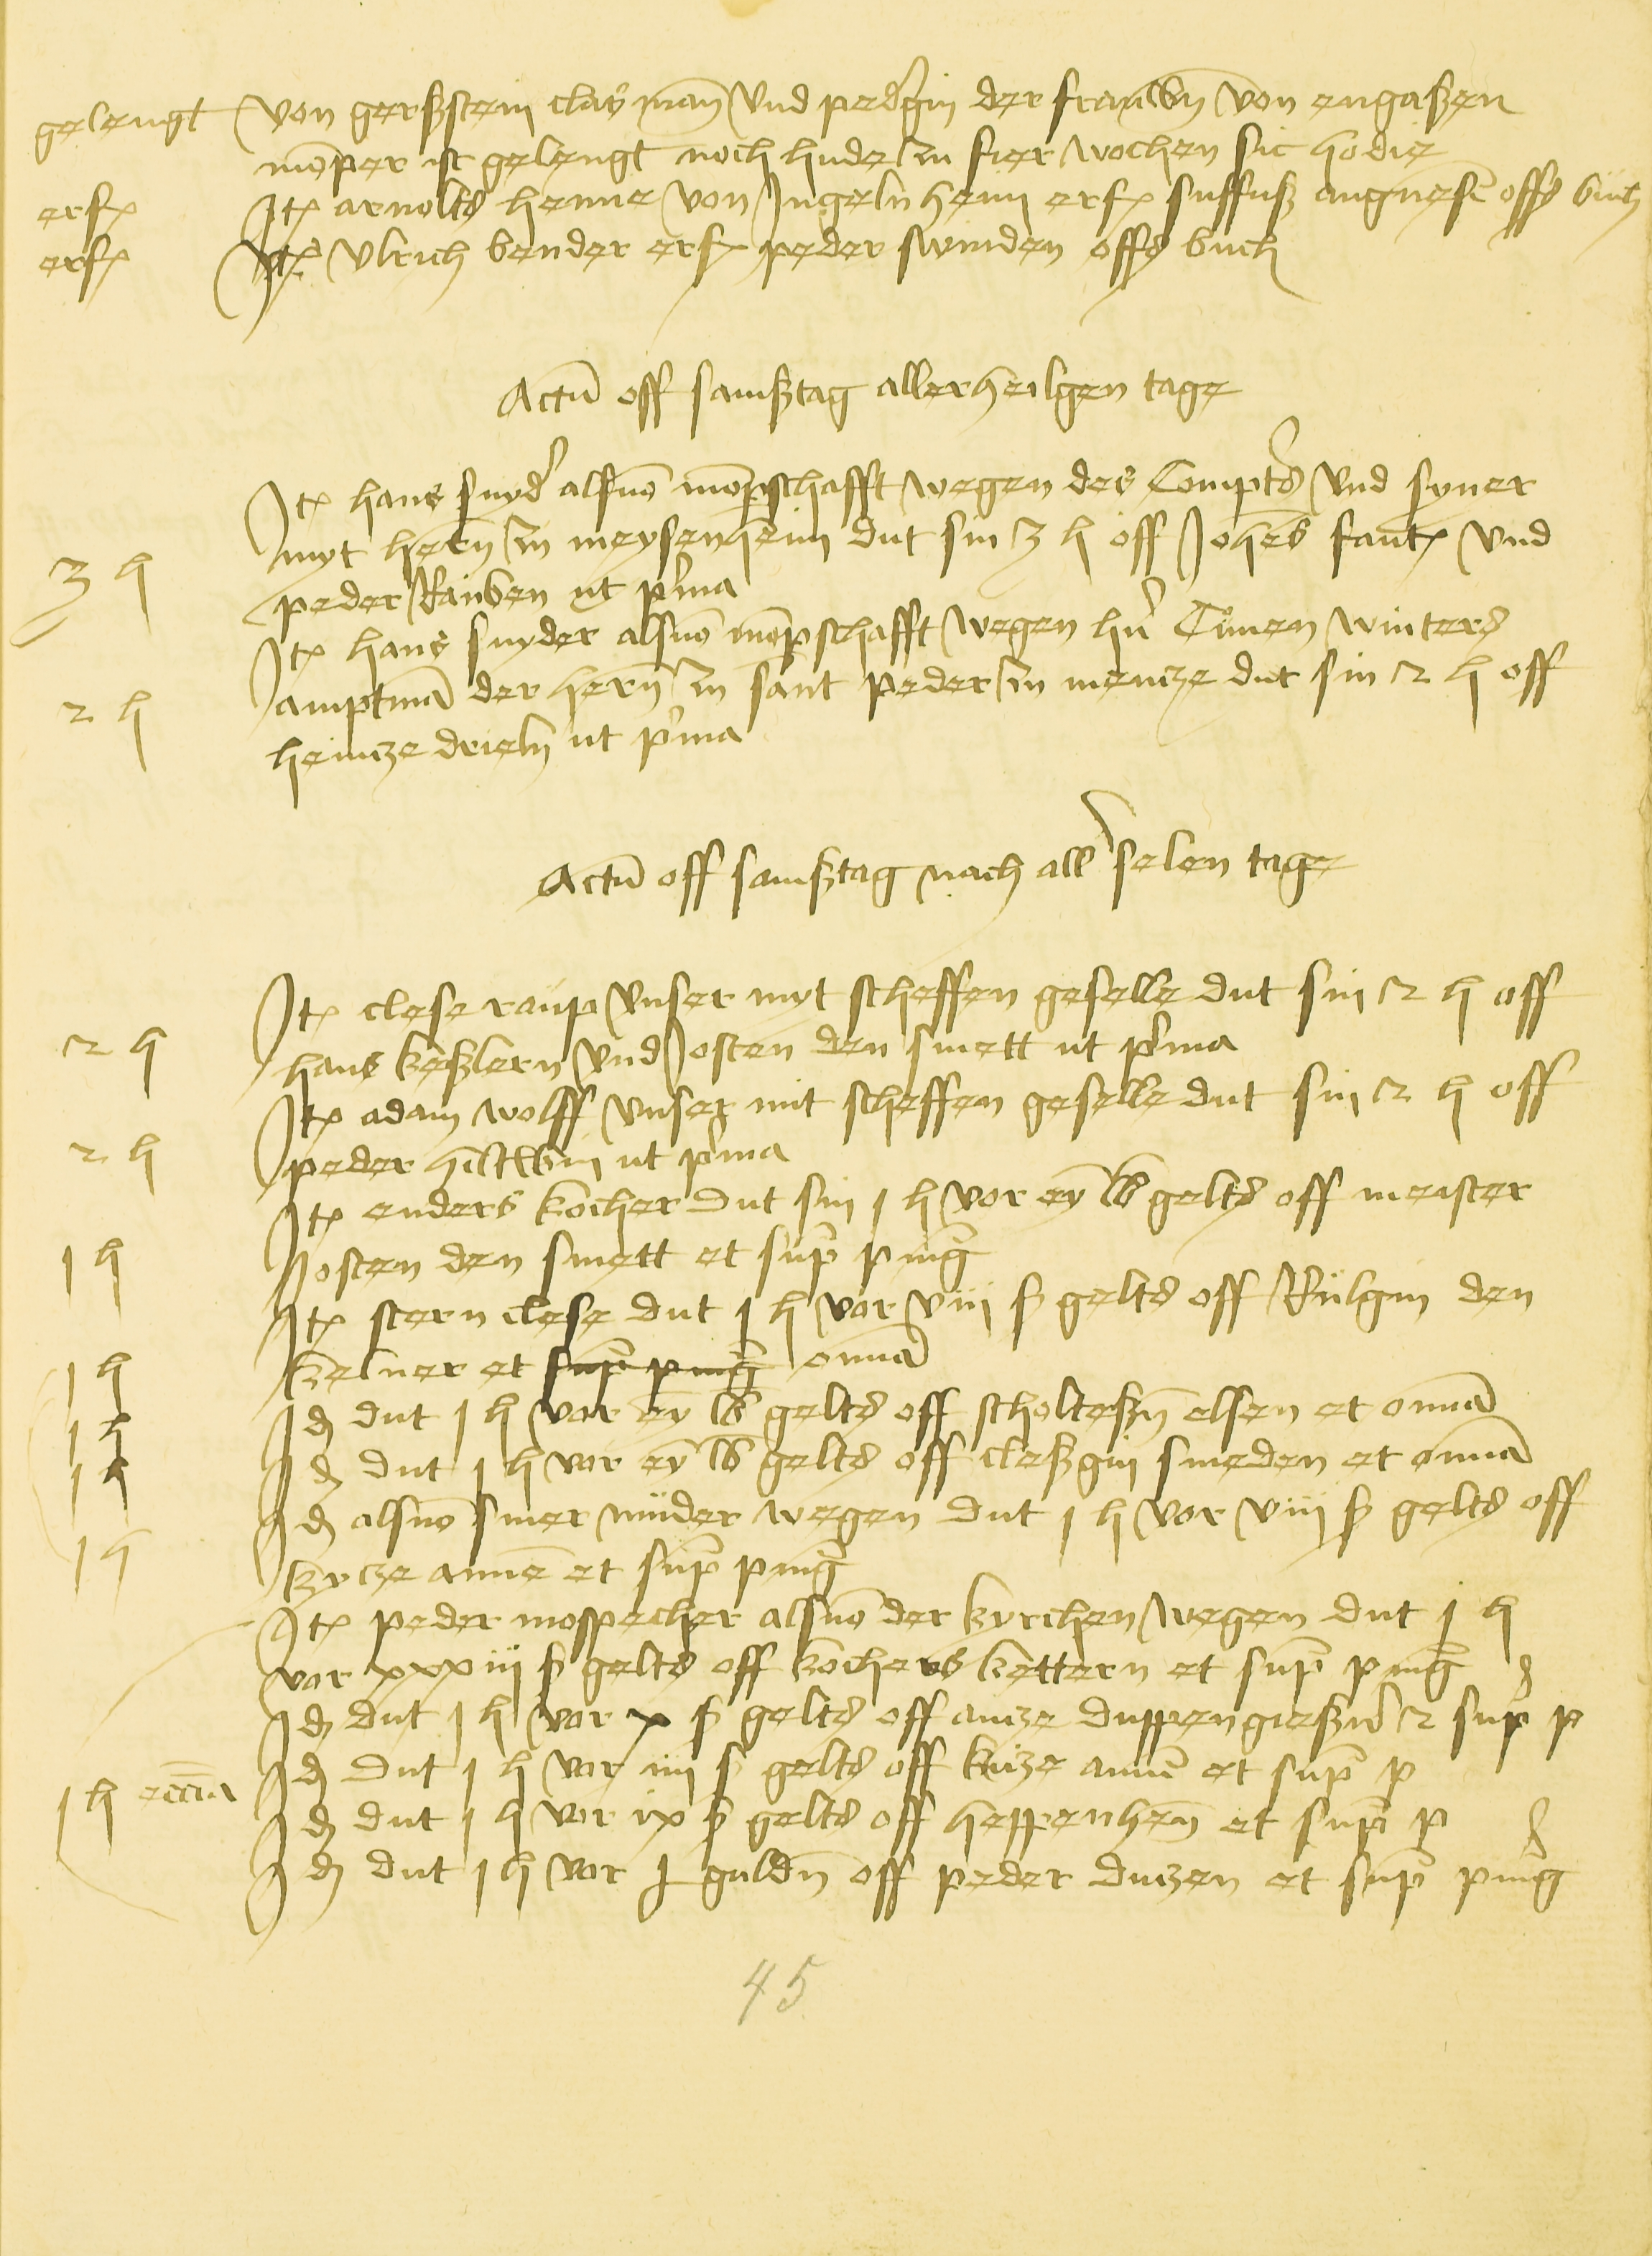 gelengt von gerßstein clas man vnd pedergin der frauwen von engaßen
momper ist gelengt noch hude zu fier wochen sic hodie
erf Jt arnolts henne von Jngelnheim erf suffuß angnese offs buch
erf Jt vlrich bender erf peder swinden offs buch
Actu off samßtag allerheilgen tage
Jt hans snyder alsno momperschafft wegen des Compters vnd syner
myt hern zu meysenheim dut sin 3 h off Johes faut vnd
3 h peder Rauben ut prima
Jt hans snyder alsno momperschafft wegen hr Cunen winters
2 h amptma der hern zu sant peder zu mencze dut sin 2 h off
heincze drieln ut prima
Actu off samßtag nach aller selen tage
Jt clese raup vnser myt scheffen geselle dut sin 2 h off
2 h hans keßlern vnd Josten den smett ut prima
Jt adam wolff vnser mit scheffen geselle dut sin 2 h off
2 h peder hiltwin ut prima
Jt enders kocher dut sin 1 h vor ey lb gelts off meister
1 h Josten den smett et sup ping
Jt stern clese dut 1 h vor viii ß gelts off Rulgin den
1 h kelner et sup ping omia
1 h Jd dut 1 h vor ey lb gelts off scholteßn elsen et omia
1 h Jd dut 1 h vor ey lb gelts off cleßgin smeden et omia
Jd alsno siner muder wegen dut 1 h vor viii ß gelts off
1 h kycze anne et sup ping
Jt peder mospecher alsno der kyrchen wegen dut 1 h
vor xxxiii ß gelts off kochers kettern et sup ping
Jd dut 1 h vor x ß gelts off ancze duppengießer 2 sup p
Jd dut 1 h vor iiii ß gelts off kicze anne et sup p
1 h eccia Jd dut 1 h vor ix ß gelts off heppenhen et sup p
Jd dut 1 h vor j guldn off peder duczen et sup ping
45